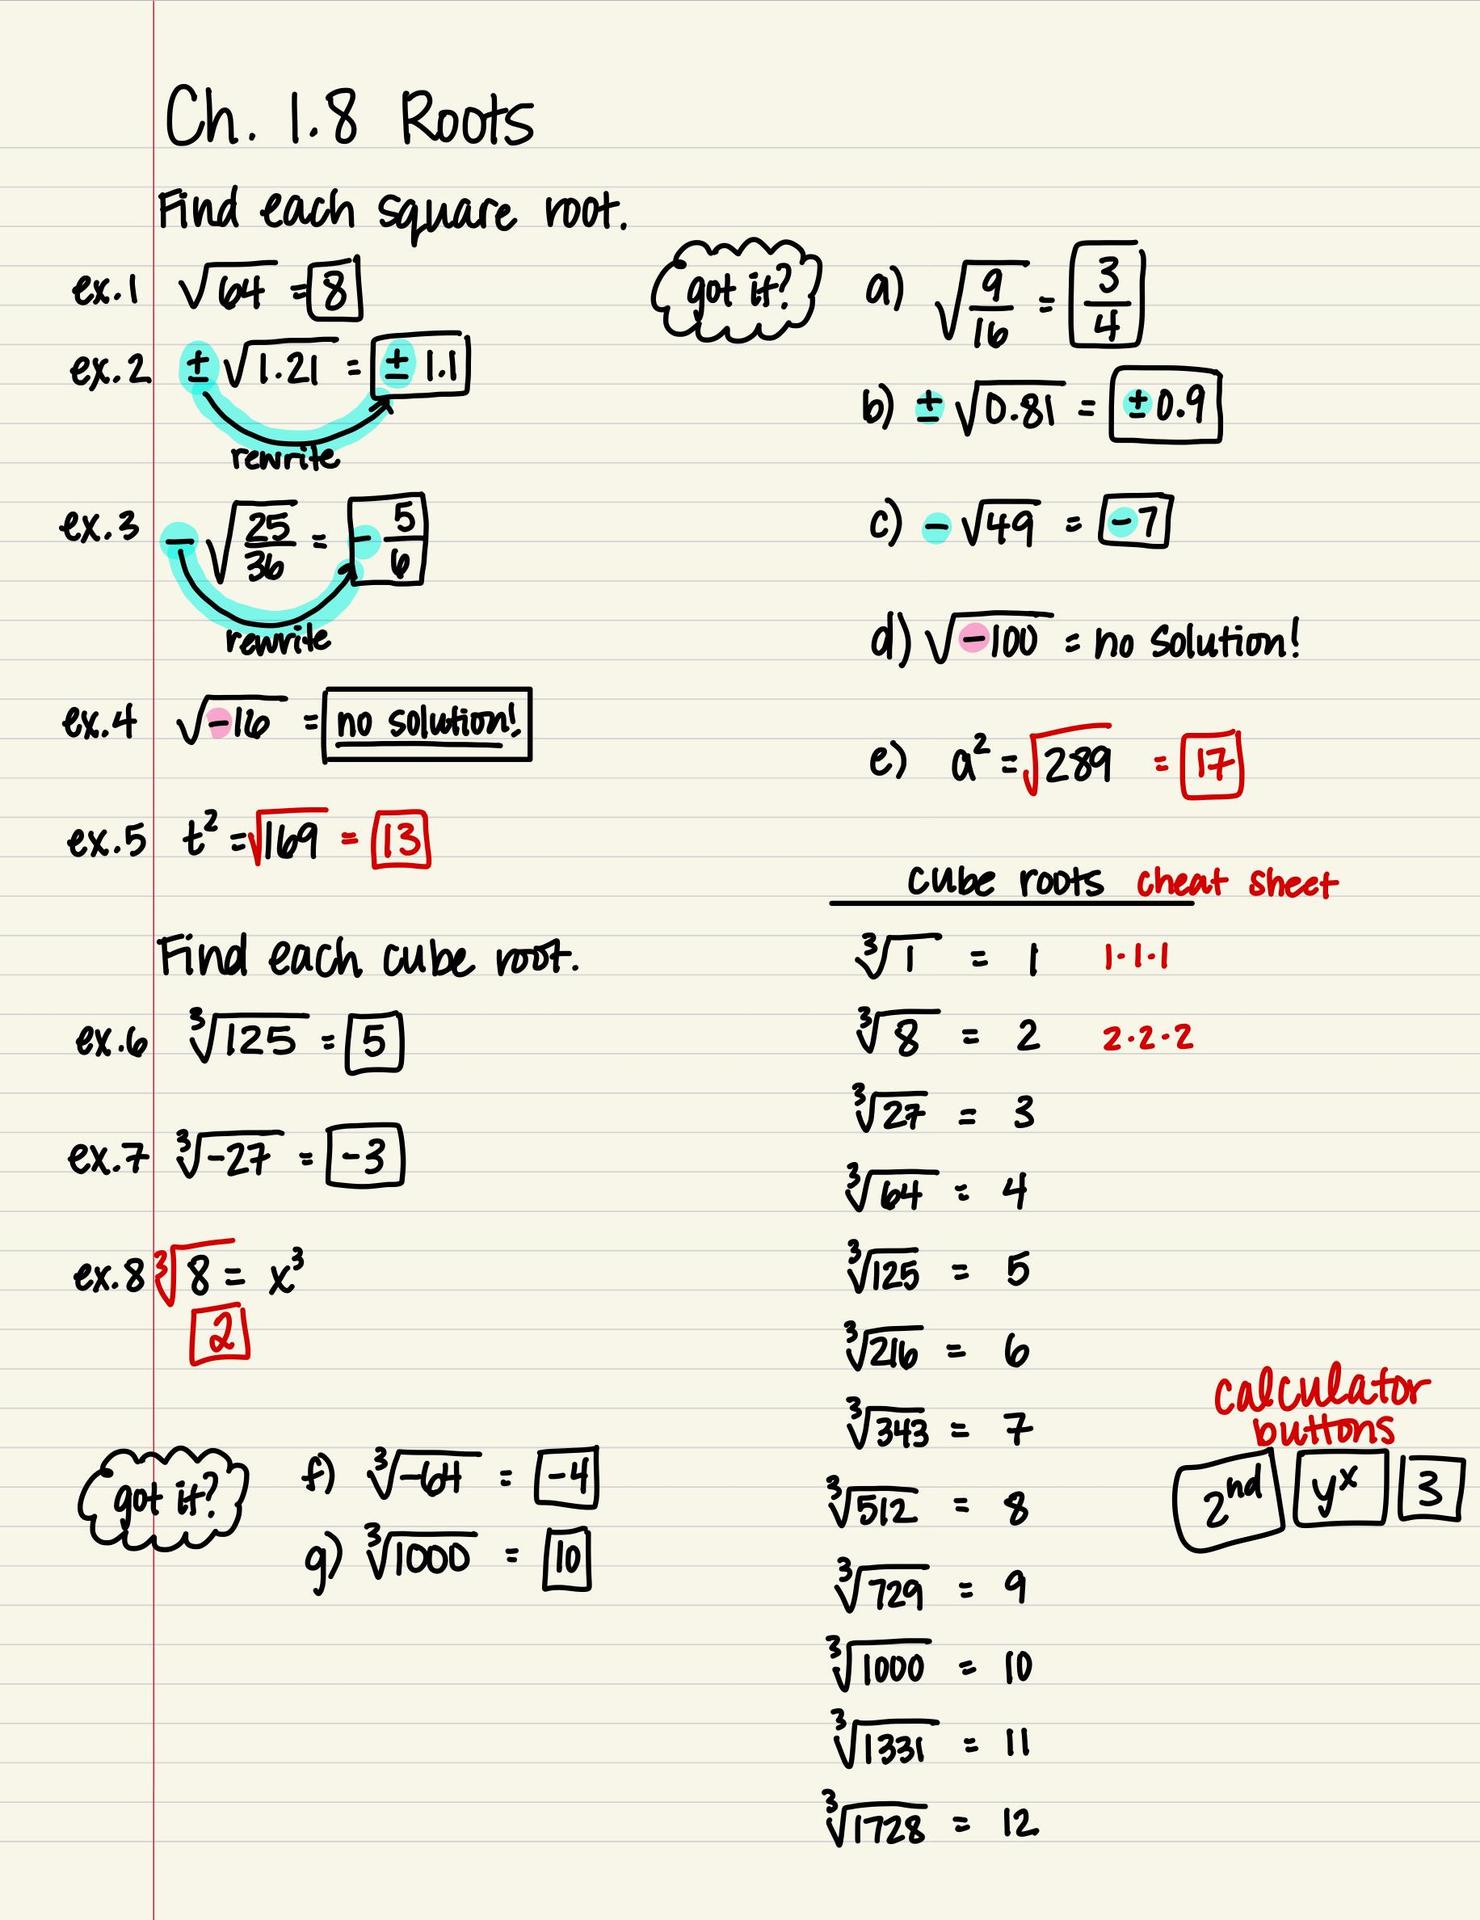 Ch. 1.8 Roots
Find each square root.
ex.1 √64 = 8
ex.2 ± √1.21 = ± 1.1
rewrite
ex.3 - √25/36 = - 5/6
rewrite
ex.4 √-16 = no solution!
ex.5 t² = √169 = 13
got it?
a) √9/16 = 3/4
b) ± √0.81 = ± 0.9
c) - √49 = -7
d) √-100 = no solution!
e) a² = √289 = 17
Find each cube root.
ex.6 ³√125 = 5
ex.7 ³√-27 = -3
ex.8 ³√8 = x³
2
got it?
f) ³√-64 = -4
g) ³√1000 = 10
cube roots cheat sheet
³√1 = 1 1·1·1
³√8 = 2 2·2·2
³√27 = 3
³√64 = 4
³√125 = 5
³√216 = 6
³√343 = 7
³√512 = 8
³√729 = 9
³√1000 = 10
³√1331 = 11
³√1728 = 12
calculator
buttons
2nd yˣ 3